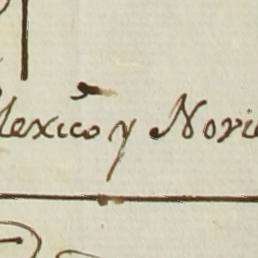 lexico y Novie